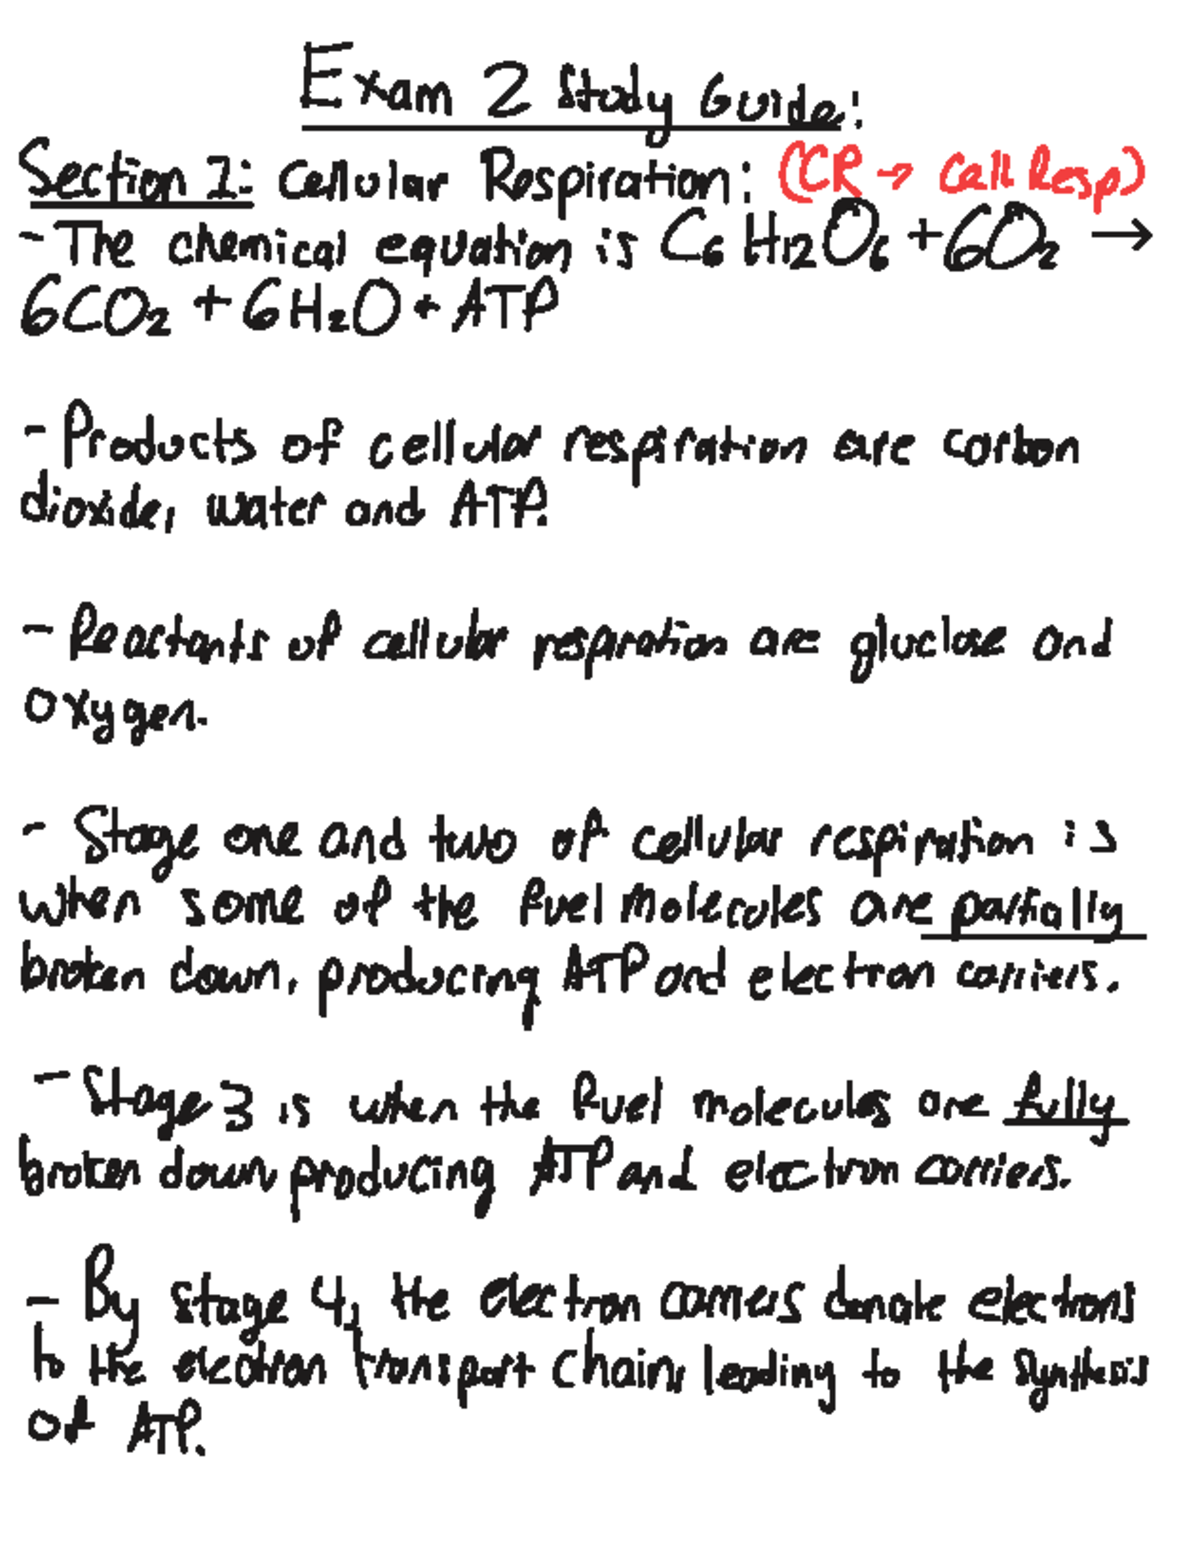 Exam 2 Study Guide:
Section 1: Cellular Respiration: (CR → Cell Resp)
- The chemical equation is C₆H₁₂O₆ + 6O₂ →
6CO₂ + 6H₂O + ATP
- Products of cellular respiration are carbon
dioxide, water and ATP.
- Reactants of cellular respiration are gluclose and
oxygen.
- Stage one and two of cellular respiration is
when some of the fuel molecules are partially
broken down, producing ATP and electron carriers.
- Stage 3 is when the fuel molecules are fully
broken down producing ATP and electron carriers.
- By stage 4, the electron carriers donate electrons
to the electron transport chain, leading to the synthesis
of ATP.